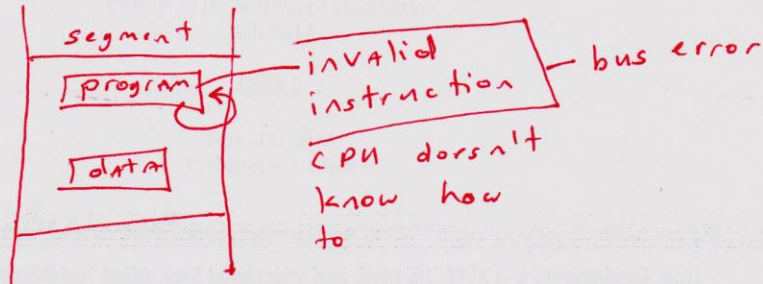 segment
program
data
invalid
instruction
bus error
CPU doesn't
know how
to